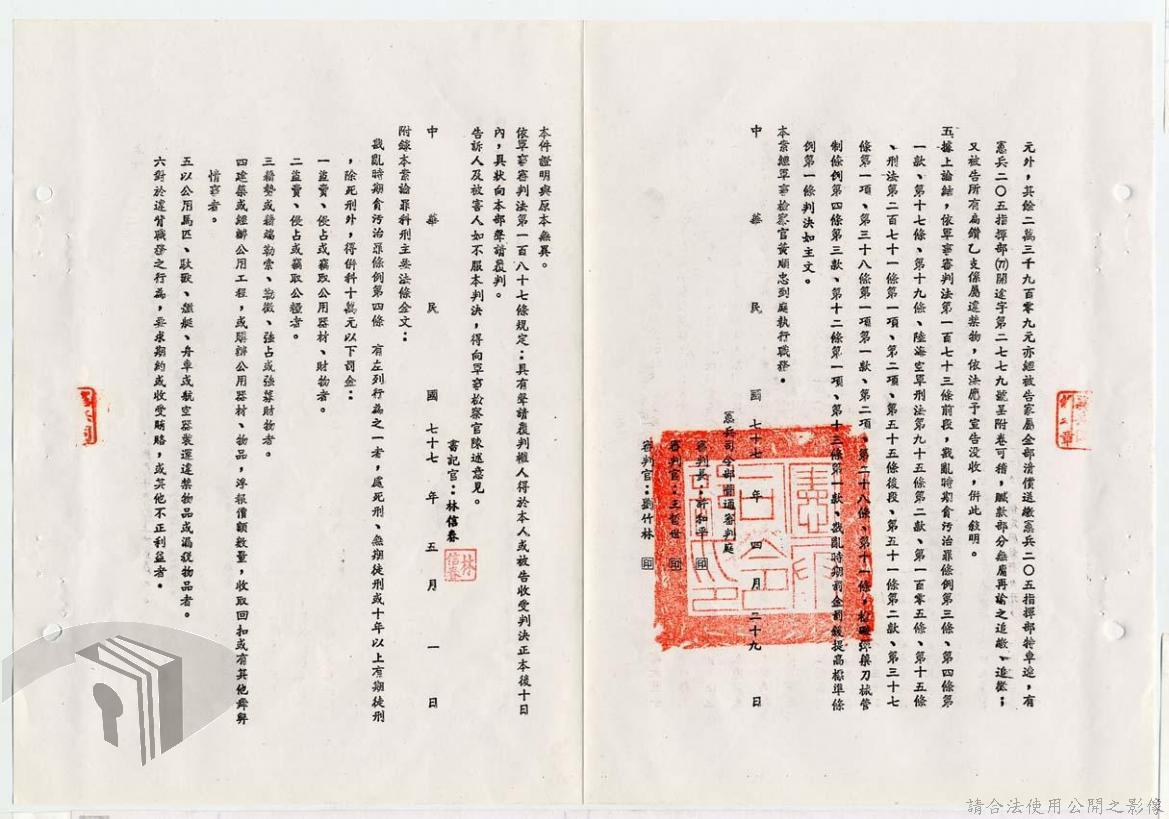 元外，其餘二萬三千九百零九元亦經被告家屬全部清償送繳憲兵二〇五指揮部特車追，有
憲兵二〇五指揮部(77)開途字第二七七九號呈附卷可稽，贓款部分無庸再諭之追繳、追徵；
又被告所有扁鑽乙支係屬違禁物，依法應予宣告沒收，併此敘明。
五、據上論結，依軍事審判法第一百七十三條前段，戡亂時期貪污治罪條例第三條、第四條第
一款、第十七條、第十九條、陸海空軍刑法第九十五條第二款、第一百零五條、第十五條
、刑法第二百七十一條第一項、第二項、第五十五條後段、第五十一條第二款、第三十七
條第一項、第三十八條第一項第一款、第二項、第二十八條、第十一條，槍砲彈藥刀械管
制條例第四條第三款、第十二條第一項、第十三條第一款、戡亂時期罰金罰鍰提高標準條
例第一條判決如主文。
本案經軍事檢察官黃順忠到庭執行職務。
憲兵司令部普通審判庭
審判長：許和平 印
審判官：王哲世 印
審判官：劉竹林 印
中華民國七十七年四月二十九日
本件證明與原本無異。
依軍事審判法第一百八十七條規定：具有聲請覆判權人得於本人或被告收受判決正本後十日
內，具狀向本部聲請覆判。
告訴人及被害人如不服本判決，得向軍事檢察官陳述意見。
書記官：林信春
林信春
中華民國七十七年五月一日
附錄本案論罪科刑主要法條全文：
戡亂時期貪污治罪條例第四條 有左列行為之一者，處死刑、無期徒刑或十年以上有期徒刑
，除死刑外，得併科十萬元以下罰金：
一盜賣、侵占或竊取公用器材、財物者。
二盜賣、侵占或竊取公糧者。
三藉勢或藉端勒索、勒徵、強占或強募財物者。
四建築或經辦公用工程，或購辦公用器材、物品，浮報價額數量，收取回扣或有其他舞弊
情事者。
五以公用馬匹、馱獸、艦艇、舟車或航空器裝運違禁物品或漏稅物品者。
六對於違背職務之行為，要求期約或收受賄賂，或其他不正利益者。
請合法使用公開之影像